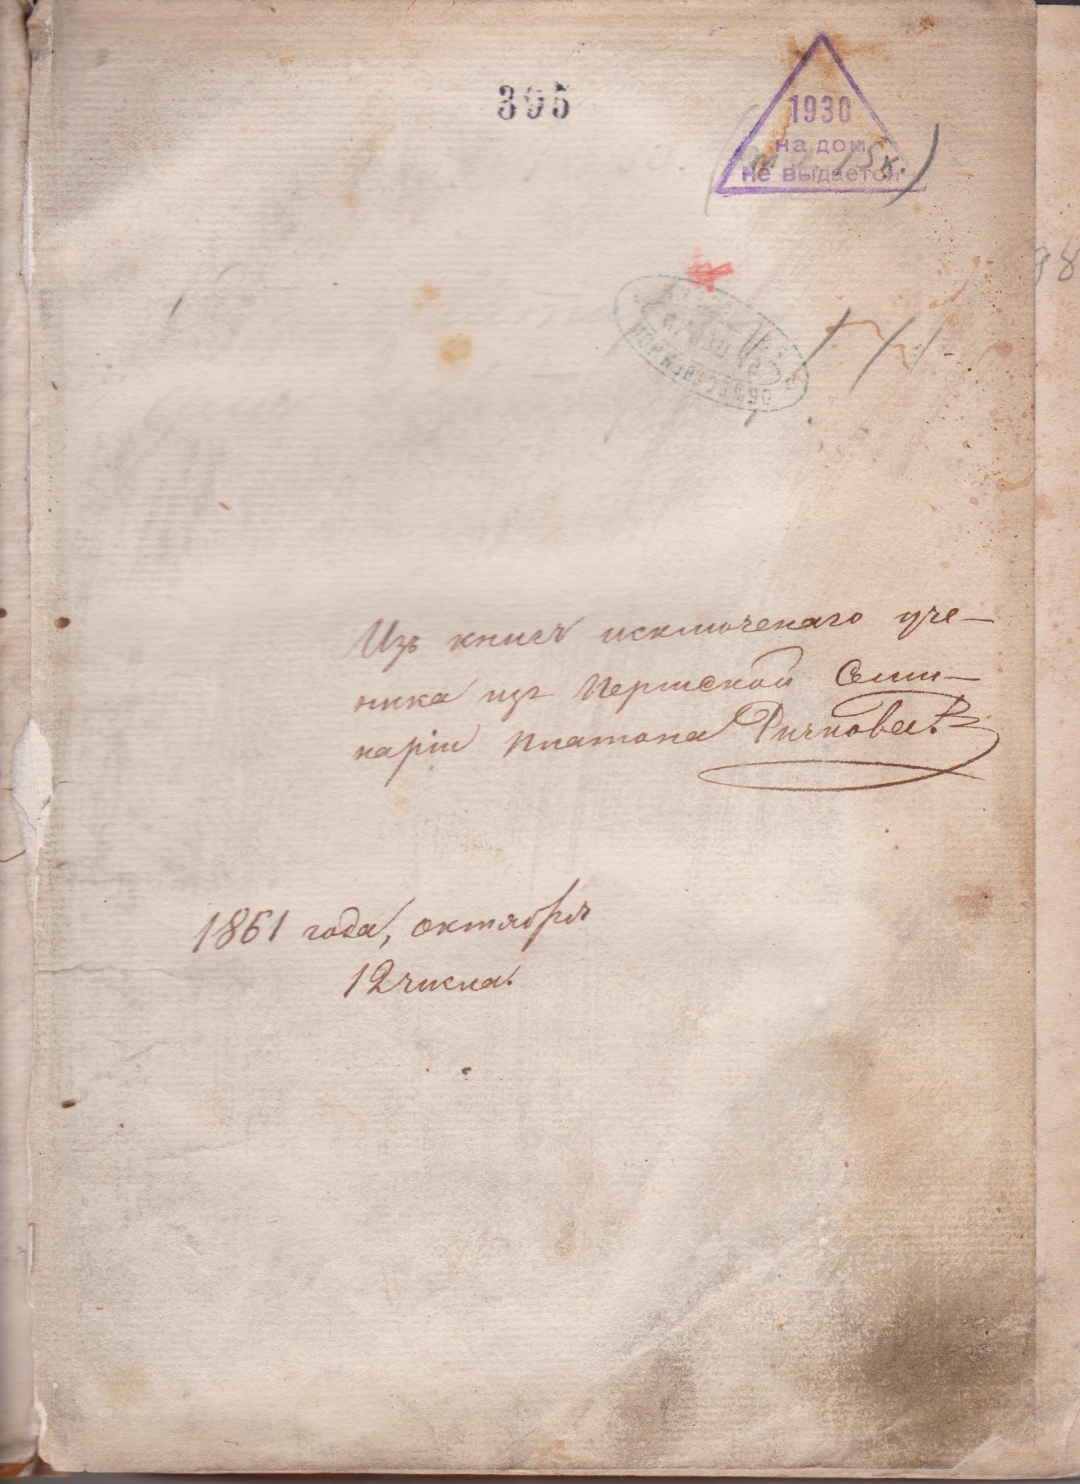 395
1930
на дом
не выдается
15 к.)
98
Изъ книгъ исключенаго уче-
ника изъ Пермской Семи-
наріи Платона
1861 года, октября
12 числа.